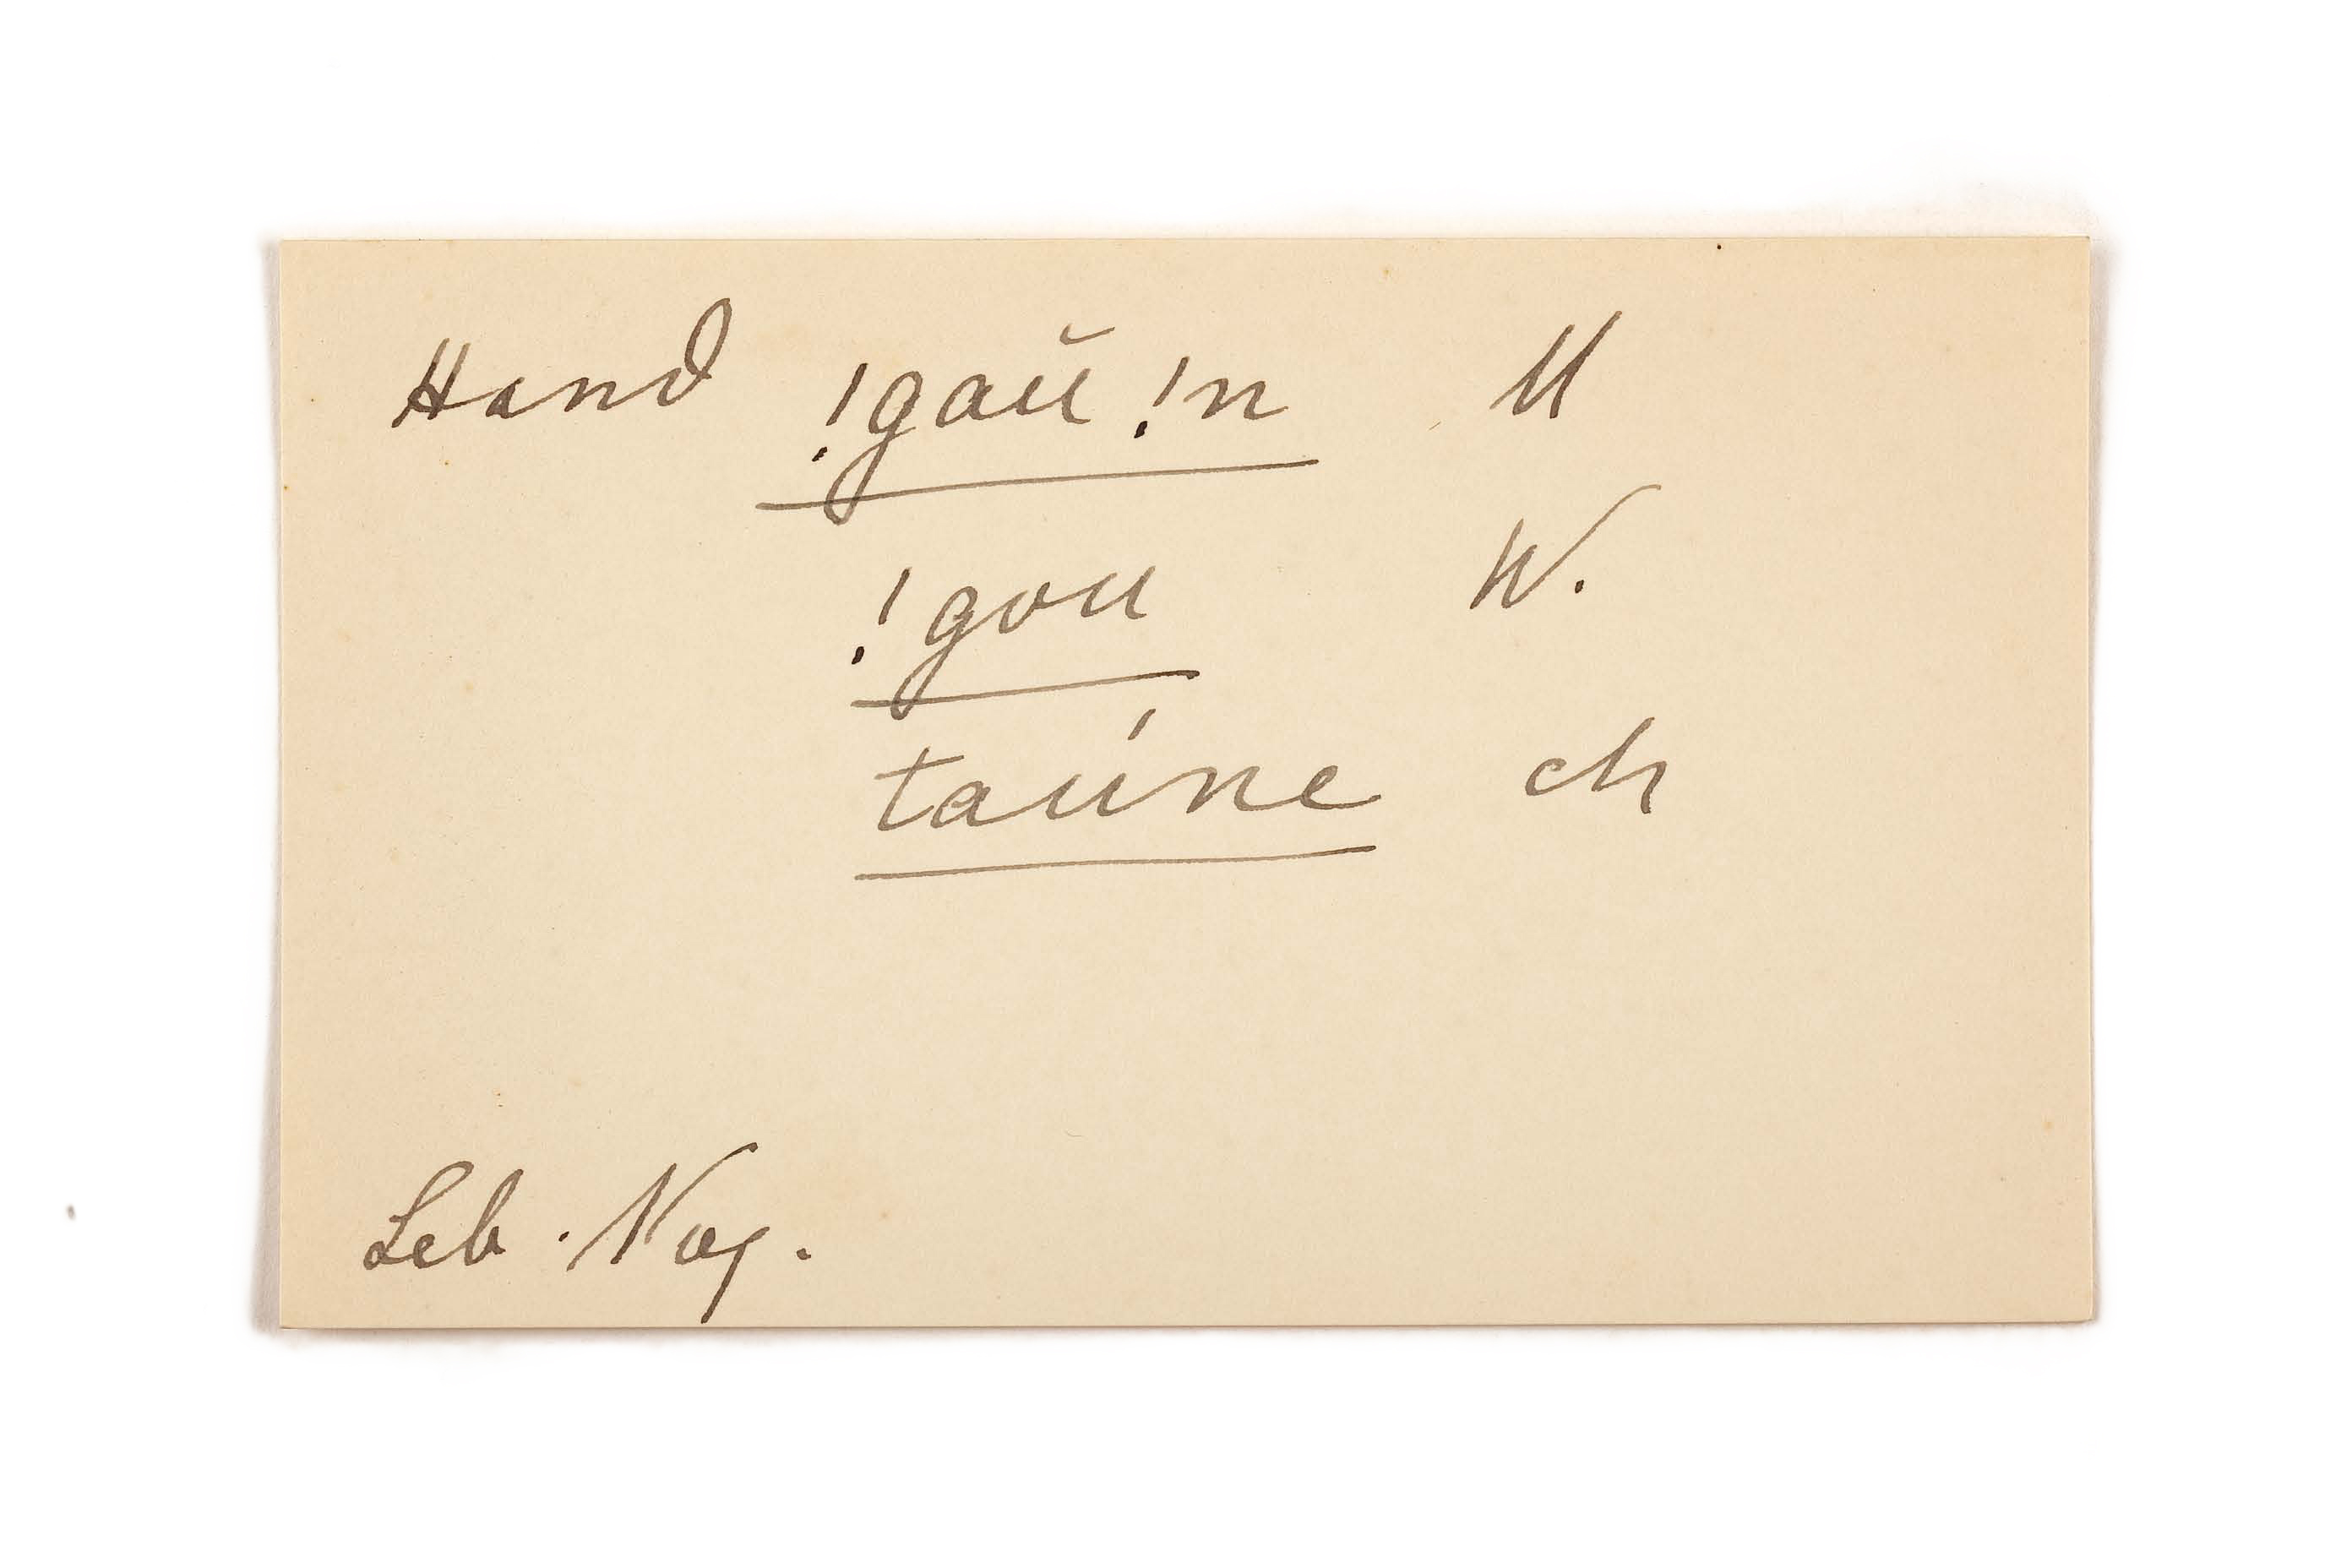 Hand !gaŭ !n M
!gou W.
taúne ch
Leb. Nog.